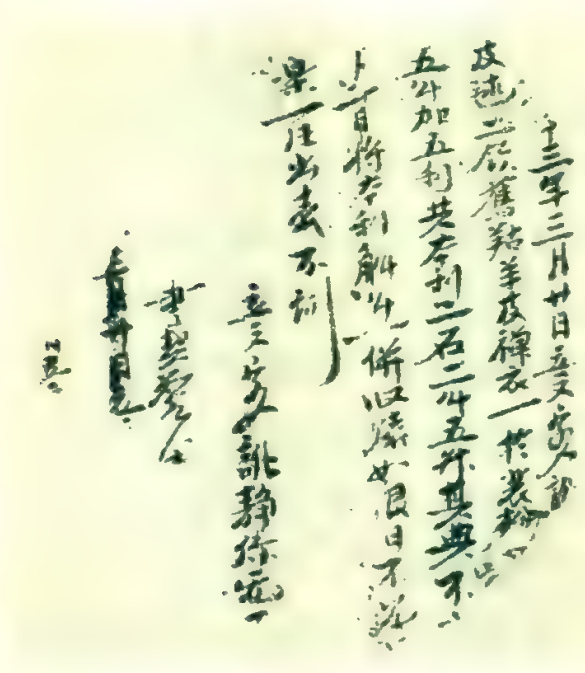 十三年三月廿日立文字人訛
皮毬二舊羖羊皮禪衣一於裴松
五斗加五利共本利二石二斗五升其典不
一日將本利斛斗併收贖如限日不贖
來一任出賣不詞
立文字人訛静你
書契